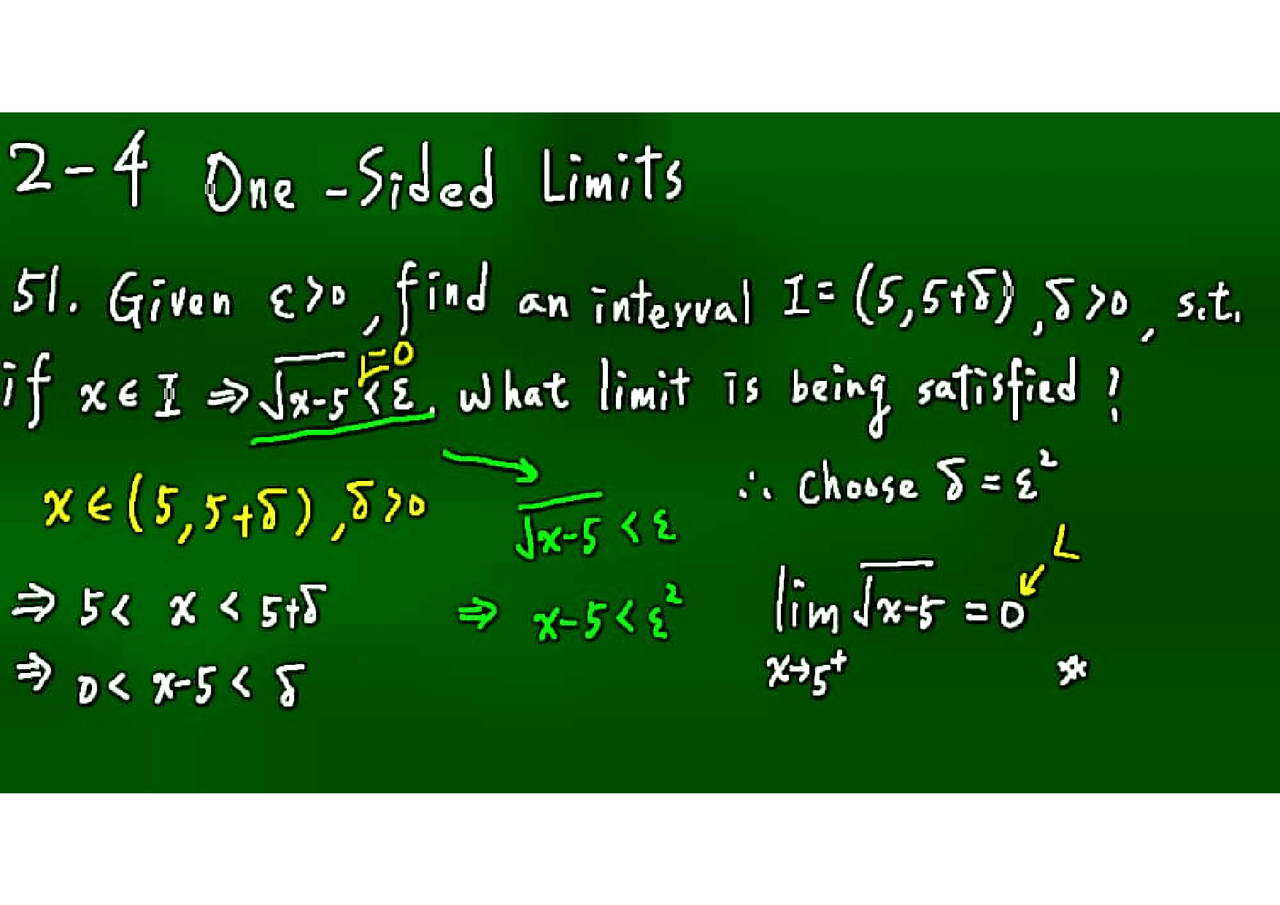 2-4 One-Sided Limits
51. Given ε>0, find an interval I=(5,5+δ), δ>0, s.t.
if x∈I ⇒ √x-5 < ε. What limit is being satisfied?
-0
x∈(5,5+δ), δ>0
⇒ 5< x < 5+δ
⇒ 0< x-5 < δ
√x-5 < ε
⇒ x-5 < ε²
∴ Choose δ = ε²
L
lim √x-5 = 0
x→5⁺